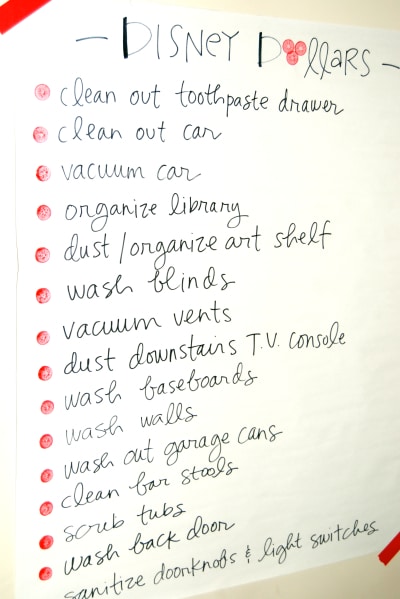 - DISNEY DOLLARS -
clean out toothpaste drawer
clean out car
vacuum car
organize library
dust/organize art shelf
wash blinds
vacuum vents
dust downstairs T.V. console
wash baseboards
wash walls
wash out garage cans
clean bar stools
scrub tubs
wash back door
sanitize doorknobs & light switches